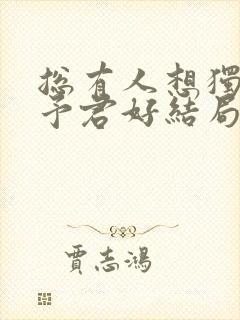 總有人想獨
予君好結局
賈志鴻